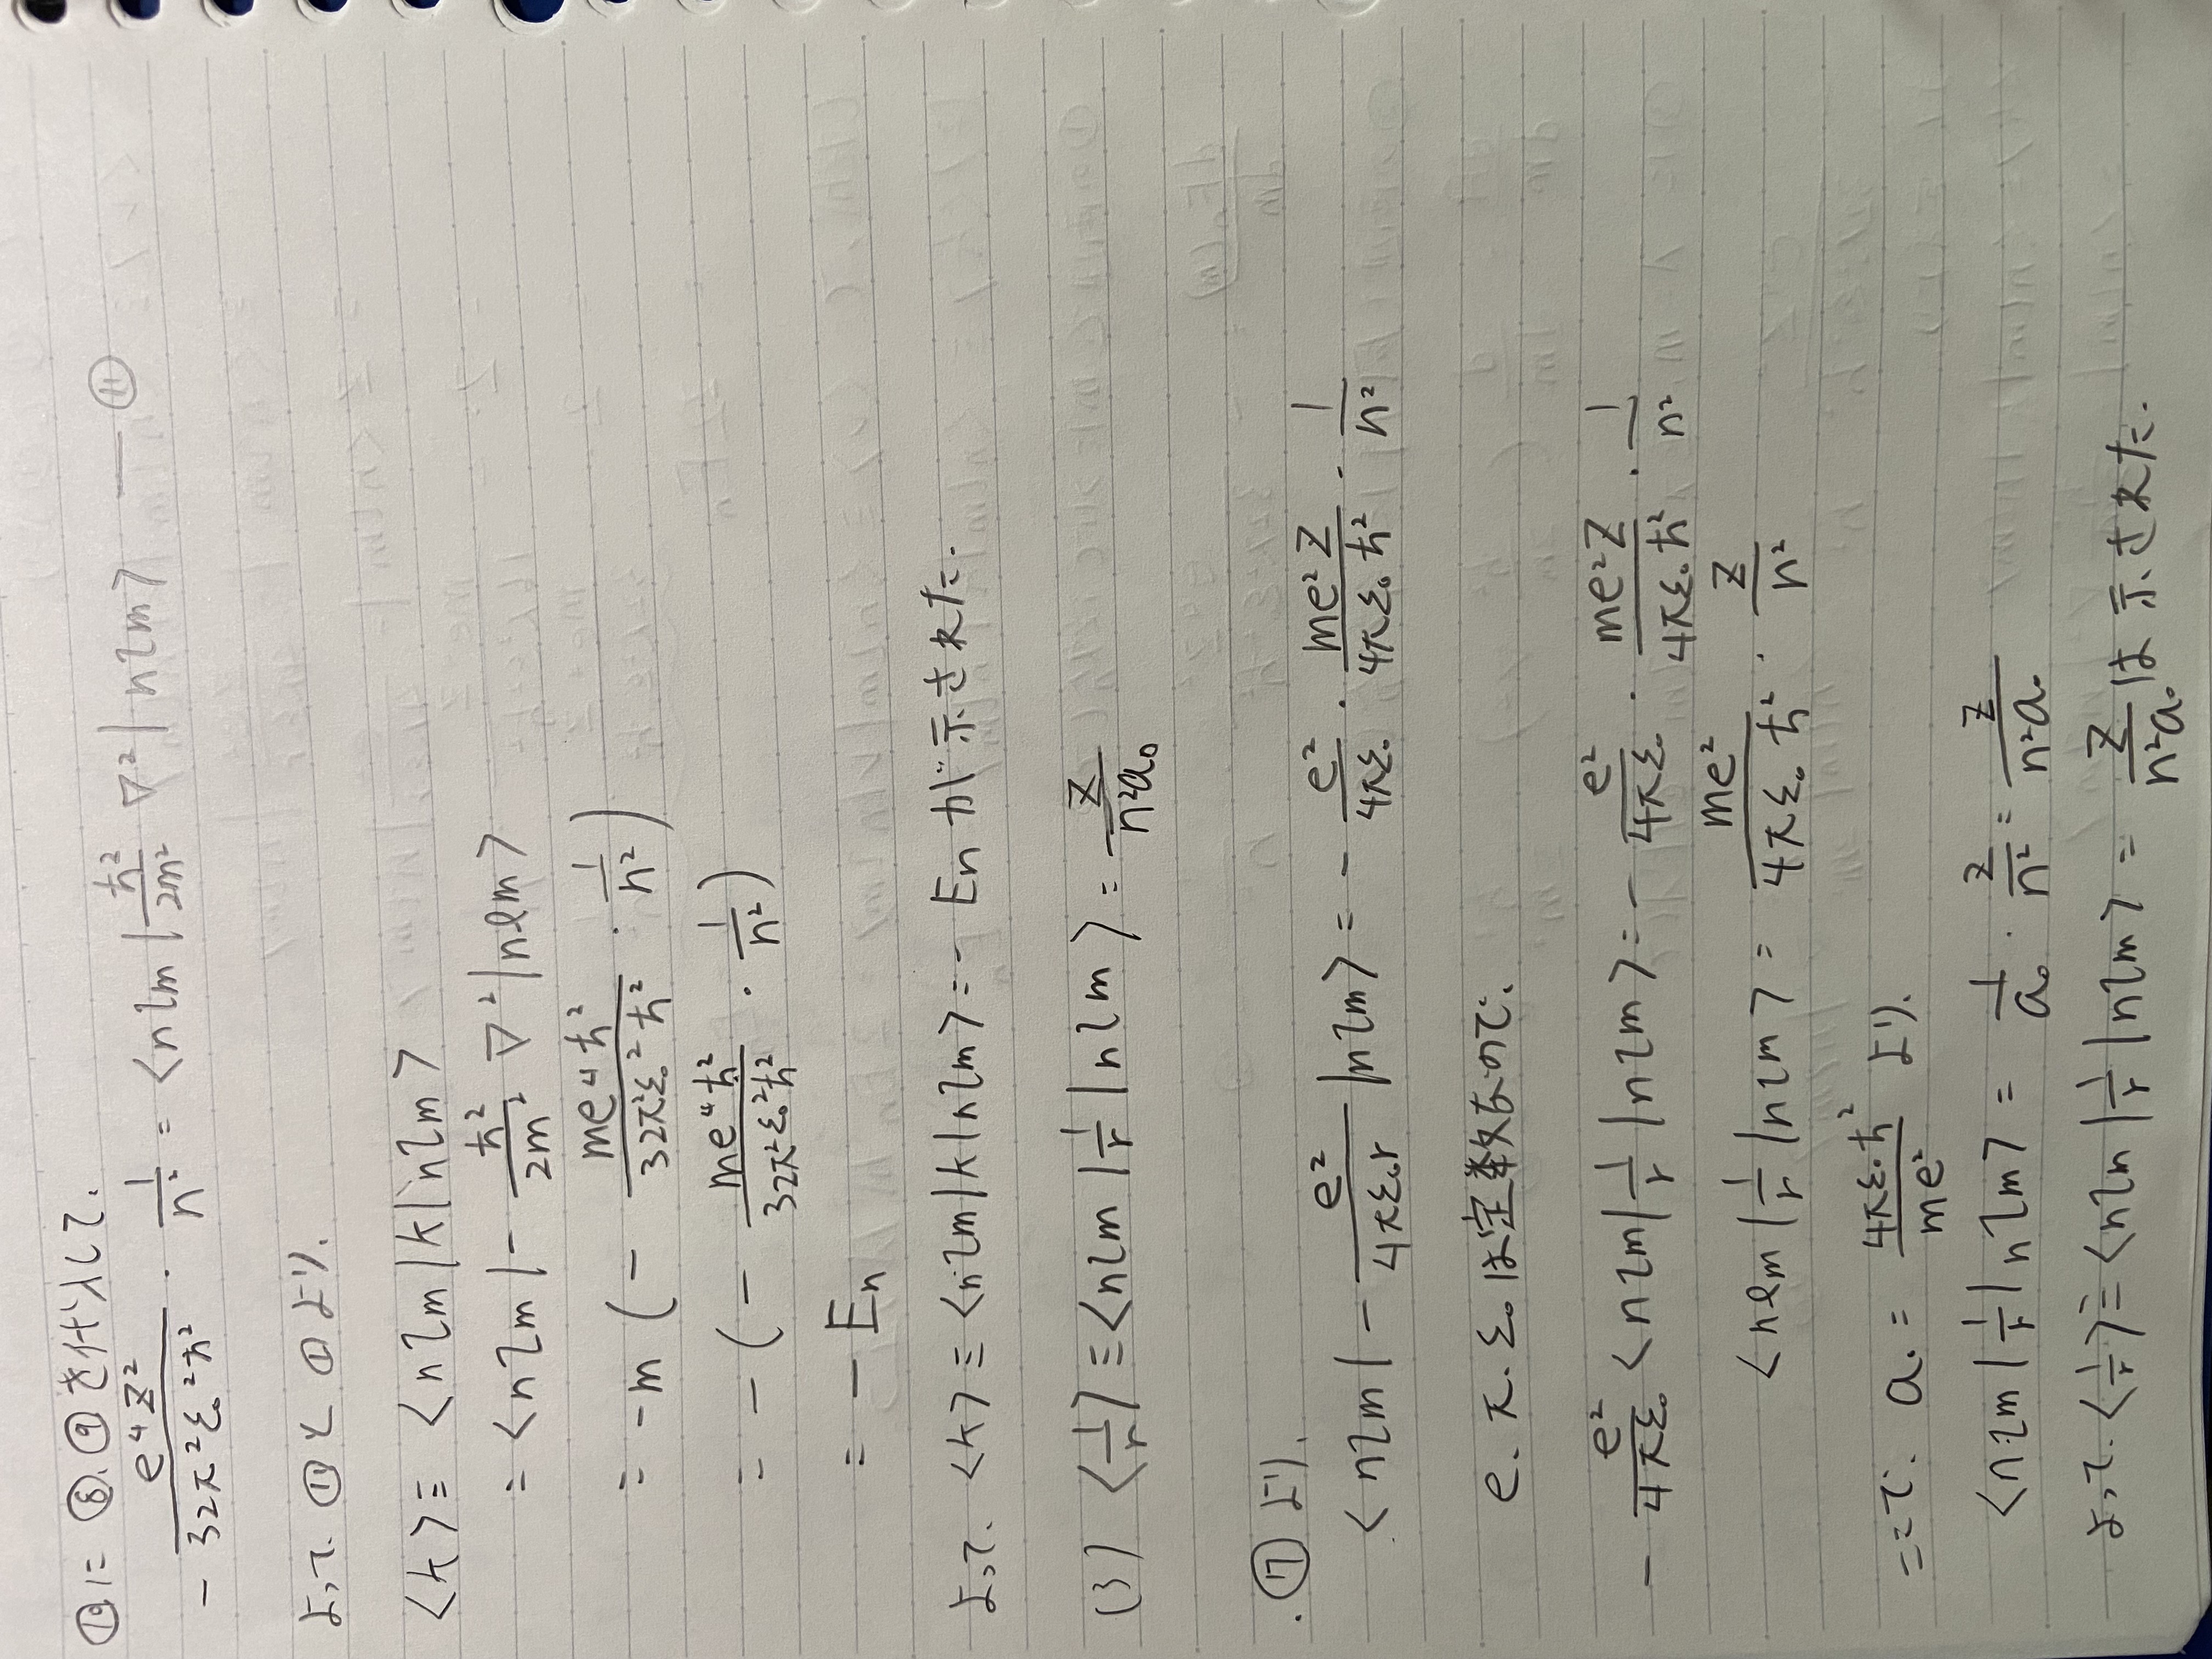 ⑩に ⑧、⑨を代入して、
- e⁴Z²/32π²ε₀²ħ² · 1/n² = <nlm|ħ²/2m² ∇²|nlm> ― ⑪
よって、⑪と①より、
<k> ≡ <nlm|k|nlm>
= <nlm|- ħ²/2m² ∇²|nlm>
= -m (- me⁴ħ²/32π²ε₀²ħ² · 1/n²)
= -(- me⁴ħ²/32π²ε₀²ħ² · 1/n²)
= - En
よって、<k> ≡ <nlm|k|nlm> = - En が示された.
(3) <1/r> ≡ <nlm|1/r|nlm> = Z/n²a₀
.⑰より、
<nlm|- e²/4πε₀r |nlm> = - e²/4πε₀ · me²Z/4πε₀ħ² · 1/n²
e. π. ε₀は定数なので、
- e²/4πε₀ <nlm|1/r|nlm> = - e²/4πε₀ · me²Z/4πε₀ħ² · 1/n²
<nlm|1/r|nlm> = me²/4πε₀ħ² · Z/n²
ここで、a₀ = 4πε₀ħ²/me² より、
<nlm|1/r|nlm> = 1/a₀ · Z/n² = Z/n²a₀
よって、<1/r> ≡ <nlm|1/r|nlm> = Z/n²a₀ は示された.